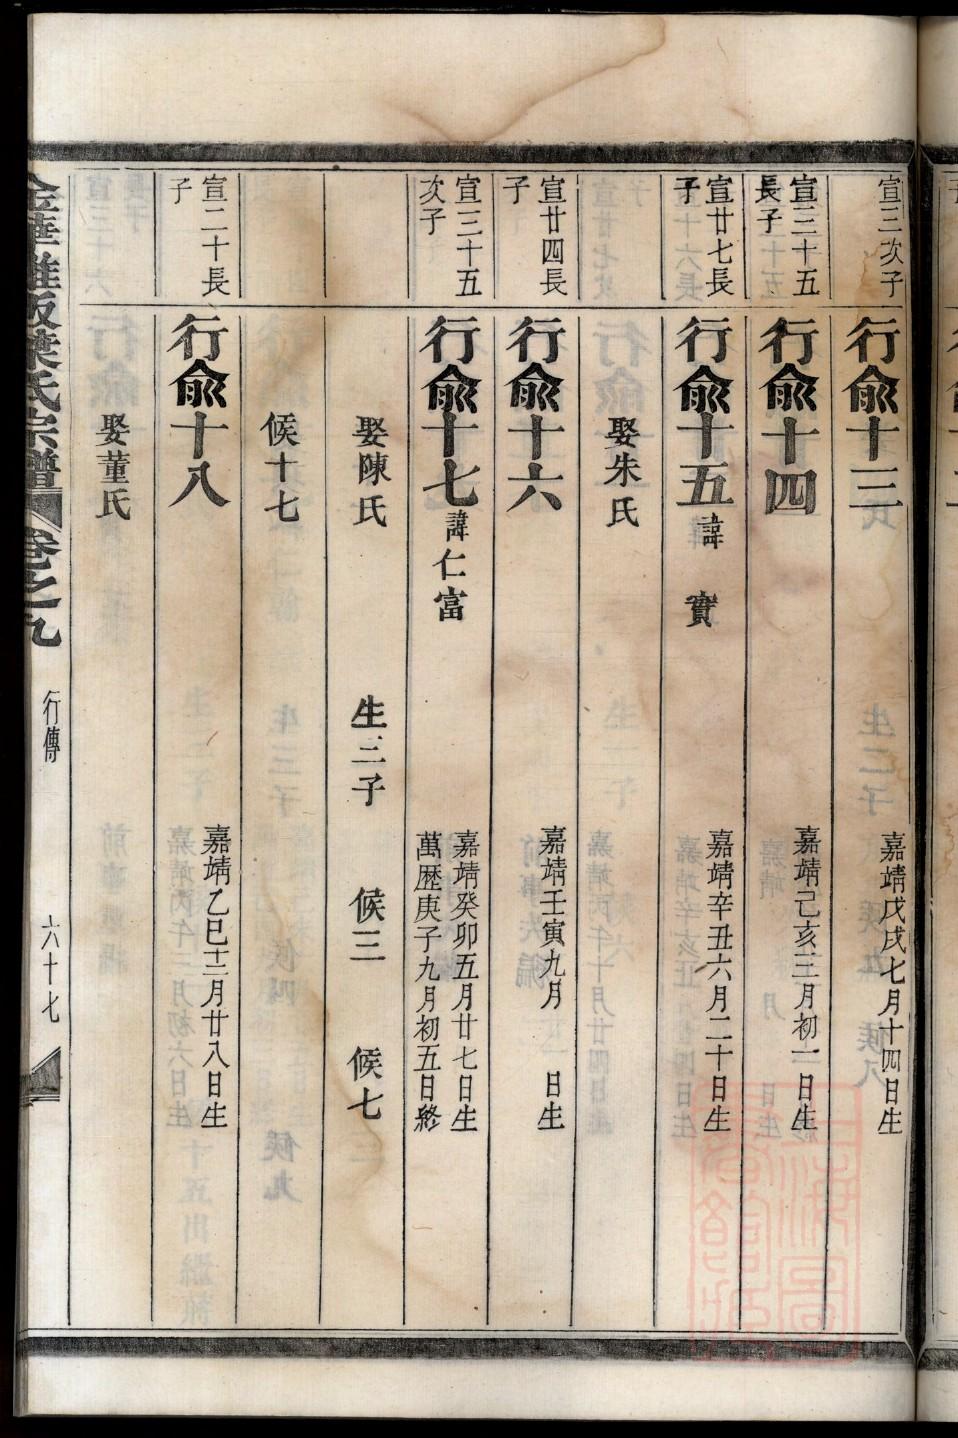 宣三次子
行兪十三
嘉靖戊戌七月十四日生
宣三十五
長子
行兪十四
嘉靖己亥三月初一日生
宣廿七長
子
行兪十五諱　實
嘉靖辛丑六月二十日生
娶朱氏
宣廿四長
子
行兪十六
嘉靖壬寅九月　日生
宣三十五
次子
行兪十七諱仁富
嘉靖癸卯五月廿七日生
萬歴庚子九月初五日終
娶陳氏　生三子　候三　候七
候十七
宣二十長
子
行兪十八
嘉靖乙巳十二月廿八日生
娶董氏
氏宗譜　卷之九　行傳　六十七